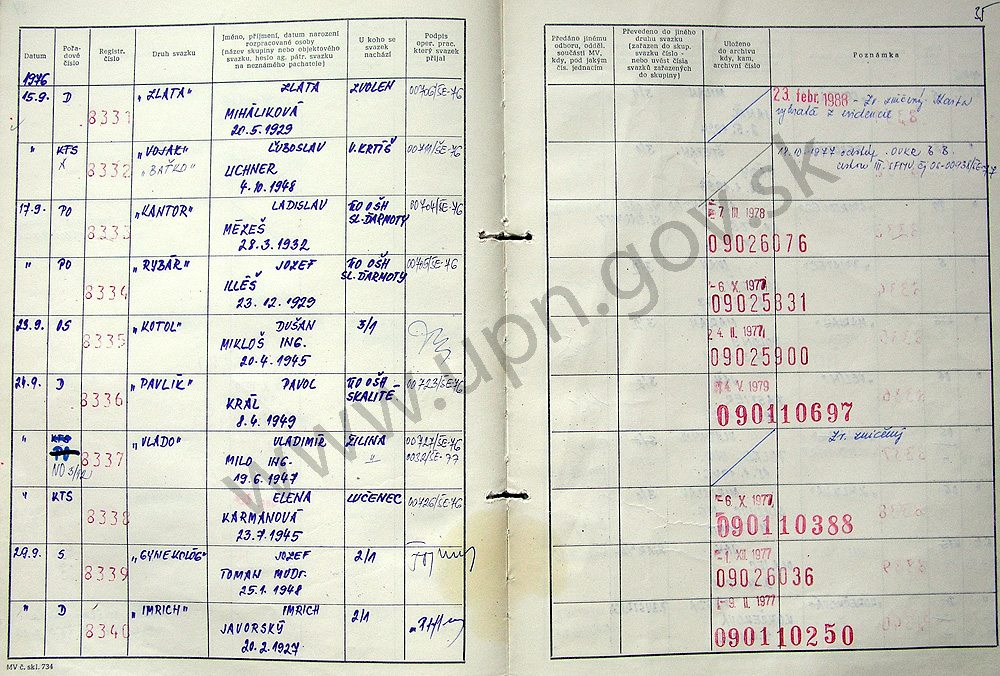 35
Datum
Pořadové číslo
Registr. číslo
Druh svazku
Jméno, příjmení, datum narození
rozpracované osoby
(název skupiny nebo objektového
svazku, heslo ag. pátr. svazku
na neznámého pachatele)
U koho se
svazek
nachází
Podpis
oper. prac.
který svazek
přijal
Předáno jinému
odboru, odděl.
součásti MV,
kdy, pod jakým
čís. jednacím
Převedeno do jiného
druhu svazku
(zařazen do skup.
svazku číslo -
nebo uvést čísla
svazků zařazených
do skupiny)
Uloženo
do archivu
kdy, kam,
archivní číslo
Poznámka
1976
15.9. D 8331 "ZLATA" ZLATA ZVOLEN 00706/ŠE-76 23. febr. 1988 - Zv. zničený. Karta
MIHÁLIKOVÁ vybratá z evidencie
20.5.1929
" KTS 8332 "VOJAK" ĽUBOSLAV V.KRTÍŠ 00711/ŠE-76
X "BAŤKO" UCHNER
4.10.1948
17.9. PO 8333 "KANTOR" LADISLAV PO OŠH 00704/ŠE-76 7. III. 1978
MÉZEŠ SL. ĎARMOTY 09026076
28.3.1932
" PO 8334 "RYBÁR" JOZEF PO OŠH 00705/ŠE-76 -6. X. 1977
ILLÉŠ SL. ĎARMOTY 09025831
23.12.1929
23.9. OS 8335 "KOTOL" DUŠAN 3/1 24. II. 1977
MIKLOŠ ING. 09025900
20.4.1945
24.9. D 8336 "PAVLÍK" PAVOL PO OŠH 00723/ŠE-76 4. V. 1979
KRÁL SKALITÉ 090110697
8.4.1949
" KTS 8337 "VLADO" VLADIMÍR ŽILINA 00727/ŠE-76 Zv. zničený
PO MILO ING. " 0032/ŠE-77
19.6.1947
" KTS 8338 ELENA LUČENEC 00726/ŠE-76 -6. X. 1977
KARMANOVÁ 090110388
23.7.1945
29.9. S 8339 "GYNEKOLÓG" JOZEF 2/1 -1. XII. 1977
TOMAN MUDr. 09026036
25.1.1948
" D 8340 "IMRICH" IMRICH 2/1 -9. II. 1977
JAVORSKÝ 090110250
20.2.1927
MV č. skl. 734
www.upn.gov.sk